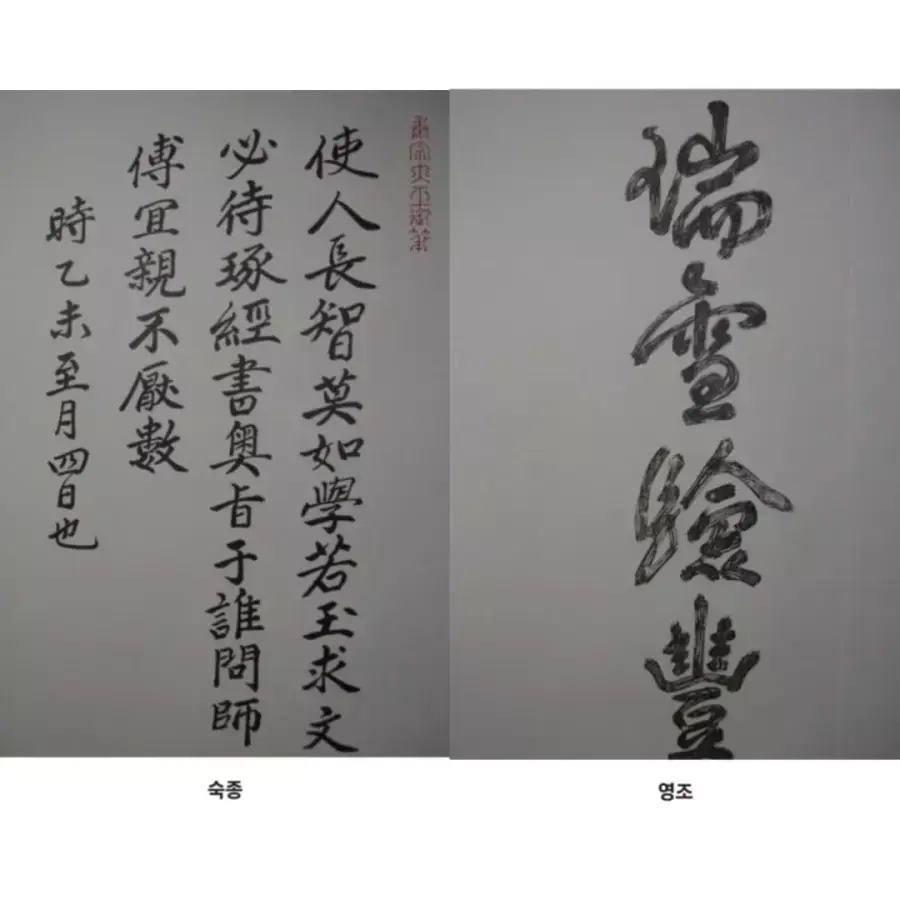 肅宗大王御筆
使人長智莫如學若玉求文
必待琢經書奧旨于誰問師
傅宜親不厭數
時乙未至月四日也
숙종
瑞雪驗豐
영조